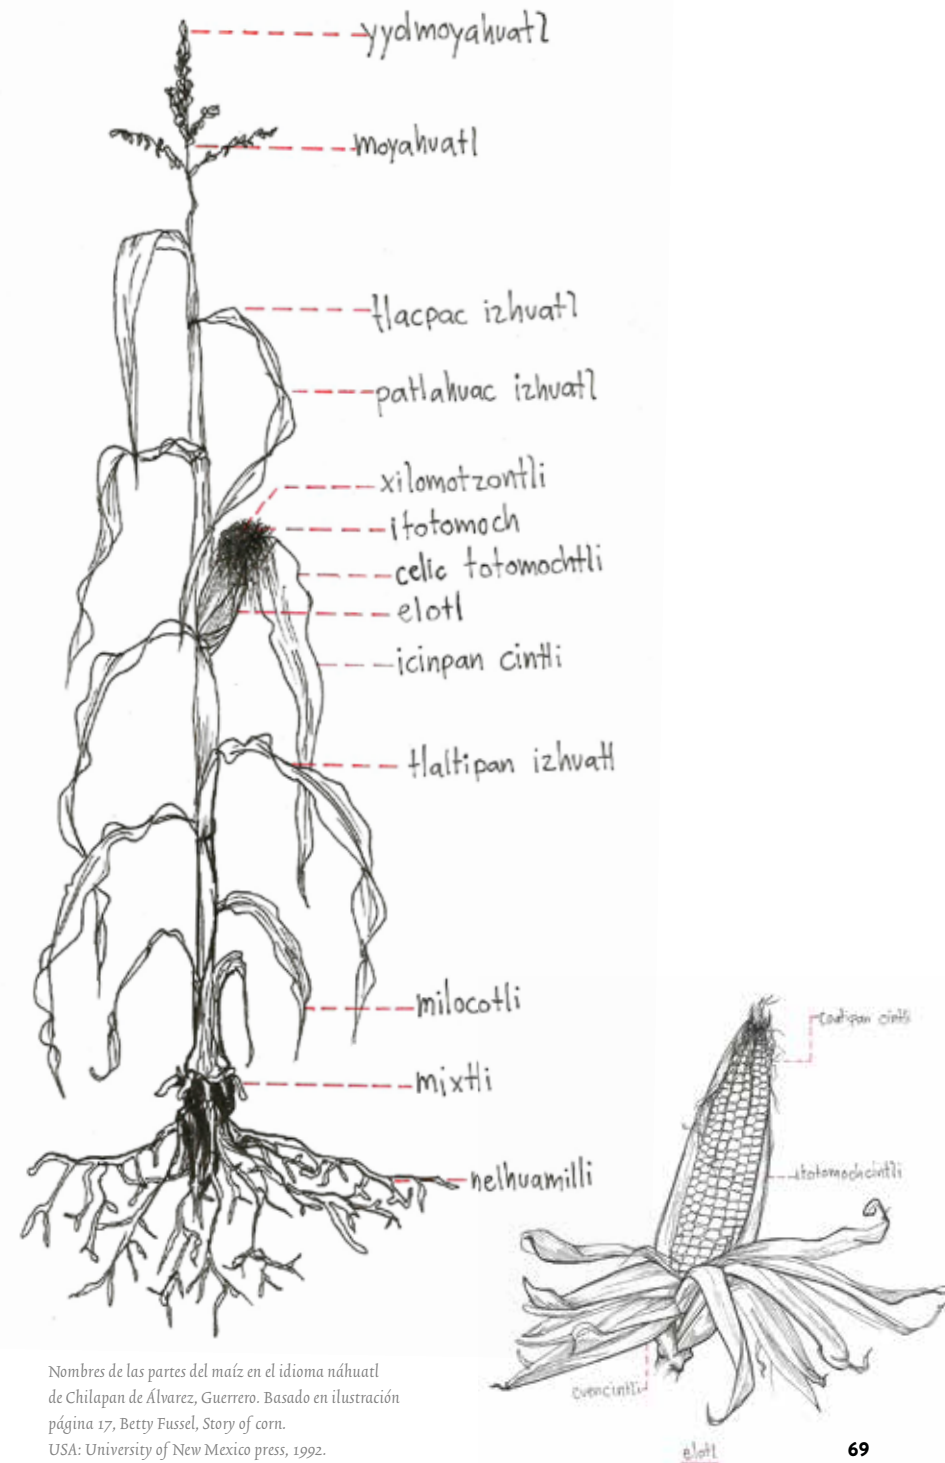 yyolmoyahuatl
moyahuatl
tlacpac izhuatl
patlahuac izhuatl
xilomotzontli
itotomoch
celic totomochtli
elotl
icinpan cintli
tlaltipan izhuatl
milocotli
mixtli
cintli
itotomochcintli
nelhuamilli
Nombres de las partes del maíz en el idioma náhuatl
de Chilapan de Álvarez, Guerrero. Basado en ilustración
página 17, Betty Fussel, Story of corn.
USA: University of New Mexico press, 1992.
cuencintli
elotl
69